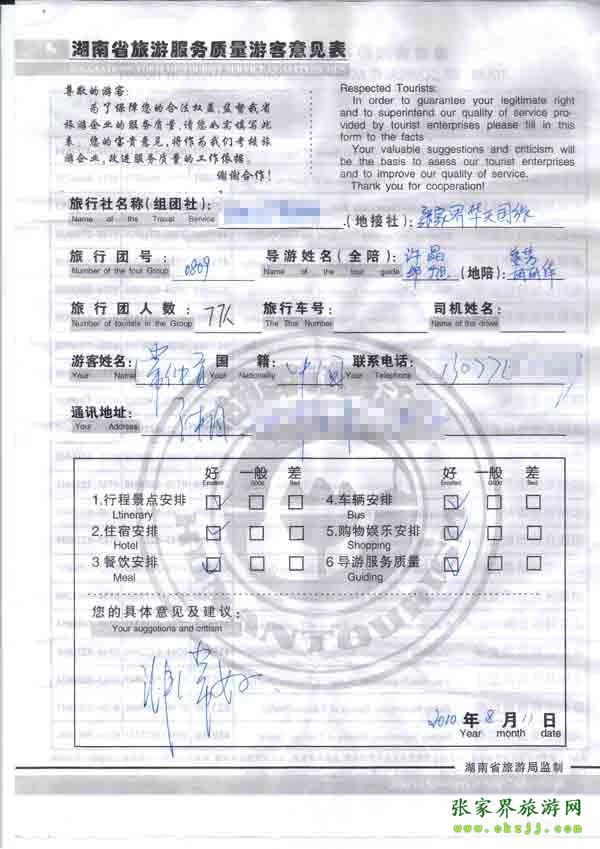 湖南省旅游服务质量游客意见表
尊敬的游客:
为了保障您的合法权益,监督我省
旅游企业的服务质量,请您如实填写此
表。您的宝贵意见,将作为我们考核旅
游企业,改进服务质量的工作依据。
谢谢合作!
Respected Tourists:
In order to guarantee your legitimate right
and to superintend our quality of service pro-
vided by tourist enterprises please fill in this
form to the facts
Your valuable suggestions and criticism will
be the basis to asess our tourist enterprises
and to improve our quality of service.
Thank you for cooperation!
旅行社名称(组团社): (地接社): 张家界中天国旅
Name of the Travel Service
旅行团号: 0809 导游姓名(全陪) 许晶 (地陪)
Number of the tour Group Name of the tour guide
旅行团人数: 77人 旅行车号: 司机姓名:
Number of tourists in the Group The Bus Number Name of the driver
游客姓名: 国籍: 中国 联系电话:
Your Name Your Nationality Your Telephone
通讯地址:
Your Address
好 一般 差 好 一般 差
Excellent Good Bad Excellent Good Bad
1.行程景点安排 4.车辆安排
Ltinerary Bus
2.住宿安排 5.购物娱乐安排
Hotel Shopping
3 餐饮安排 6 导游服务质量
Meal Guiding
您的具体意见及建议:
Your suggetions and critism
非常好
2010 年 8 月 11 日
Year month date
湖南省旅游局监制
张家界旅游网
www.okzjj.com